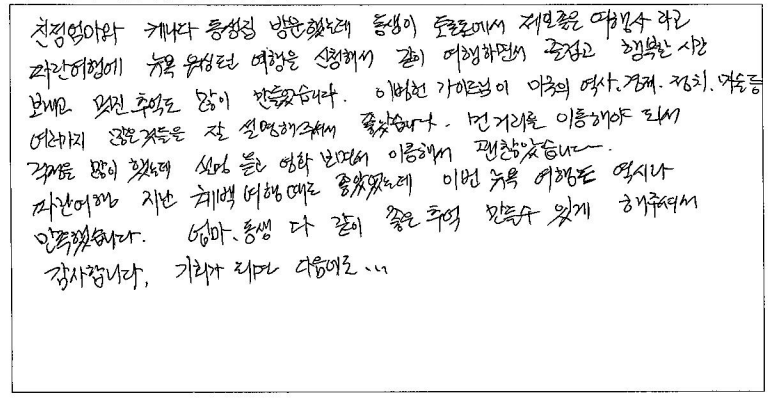 친정엄마와 캐나다 동생집 방문했는데 동생이 토론토에서 제일좋은 여행사 라고
파란여행에 뉴욕 워싱턴 여행을 신청해서 같이 여행하면서 즐겁고 행복한 시간
보내고 멋진 추억도 많이 만들었습니다. 이병헌 가이드님이 미국의 역사.경제.정치.미술등
여러가지 많은것들을 잘 설명해주셔서 좋았습니다. 먼거리를 이동해야 되서
걱정을 많이 했는데 설명 듣고 영화 보면서 이동해서 괜찮았습니다.
파란여행 지난 퀘백 여행때도 좋았었는데 이번 뉴욕 여행도 역시나
만족했습니다. 엄마, 동생 다 같이 좋은 추억 만들수 있게 해주셔서
감사합니다. 기회가 되면 다음에도...